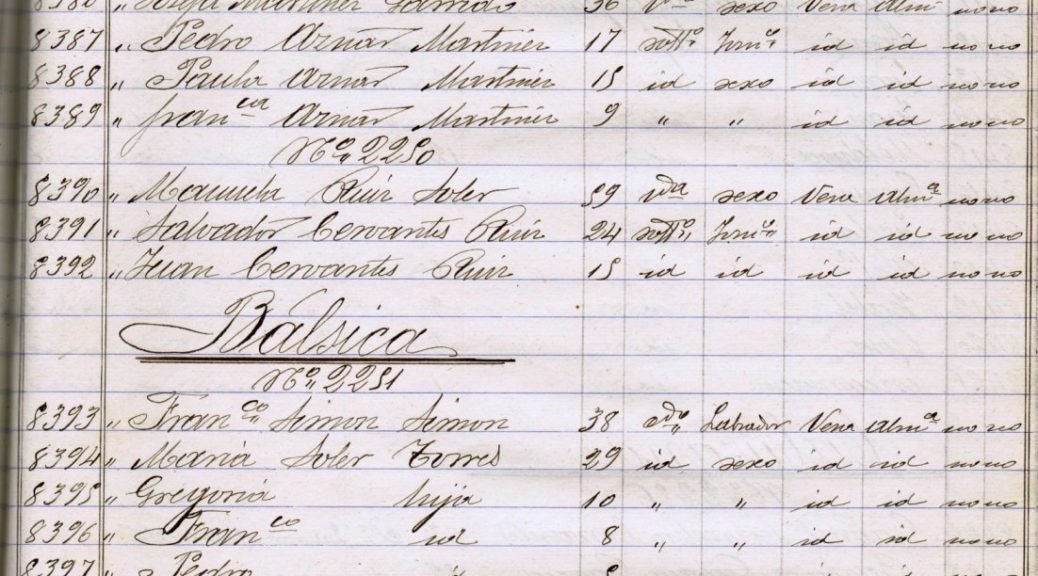 8386 " Josefa Martinez Garrido 36 Vda sexo Vera Almª no no
8387 " Pedro Aznar Martinez 17 soltº Jornº id id no no
8388 " Paula Aznar Martinez 15 id sexo id id no no
8389 " Franca Aznar Martinez 9 " " id id no no
Nº 2250
8390 " Manuela Ruiz Soler 59 Vda sexo Vera Almª no no
8391 " Salvador Cervantes Ruiz 24 soltº Jornº id id no no
8392 " Juan Cervantes Ruiz 15 id id id id no no
Bálsica
Nº 2251
8393 " Franco Simon Simon 38 cdo Labrador Vera Almª no no
8394 " Maria Soler Torres 29 id sexo id id no no
8395 " Gregoria hija 10 " " id id no no
8396 " Franco id 8 " " id id no no
8397 " Pedro